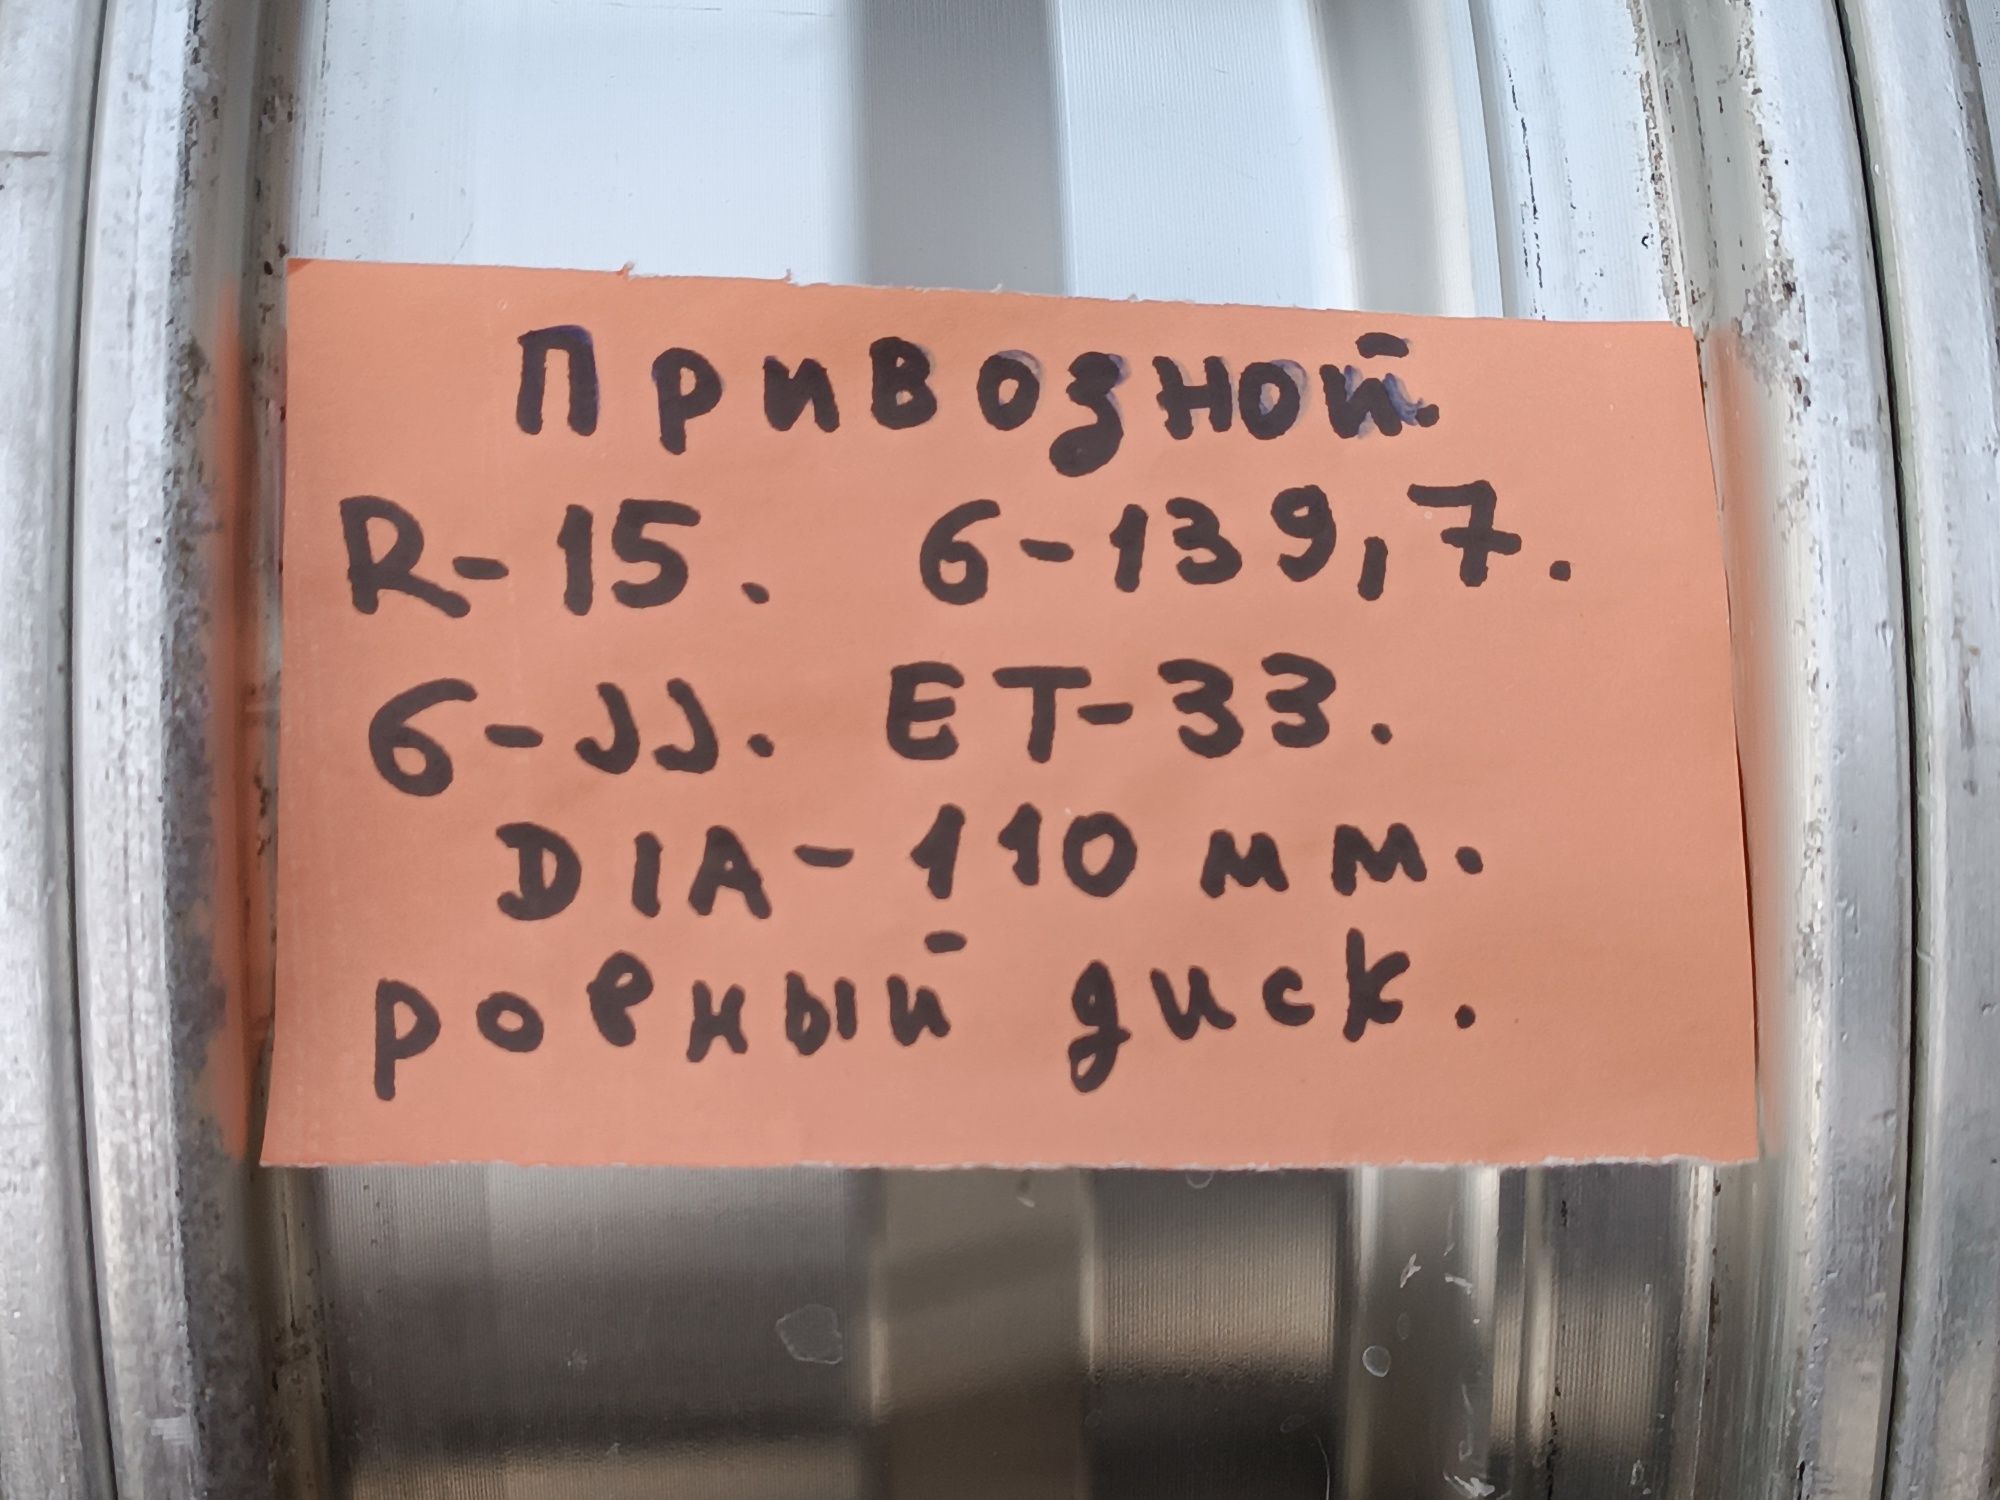 Привозной.
R-15. 6-139,7.
6-JJ. ET-33.
DIA-110 мм.
ровный диск.